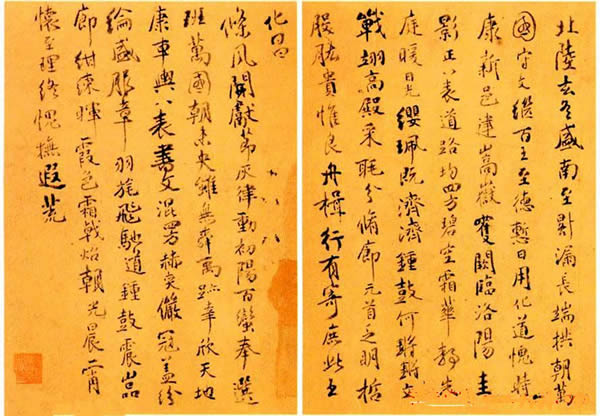 北陸玄冬盛南至晷漏長端拱朝萬
國守文繼百王至德慙日用化道愧時
康新邑建嵩嶽雙闕臨洛陽圭
影正八表道路均四方碧空霜華轉朱
庭暖日光纓珮既濟濟鍾鼓何鍠鍠文
戟翊高殿采眊分脩廊元首乏明哲
股肱貴惟良舟楫行有寄庶此王
化昌
條風開獻節灰律動初陽百蠻奉
萬國朝未央雖無舜禹跡幸欣天地
康車輿八表書文混四方赫奕儼冠盖紛
綸盛服章羽旄飛馳道鍾鼓震巖
廊組練輝霞色霜戟焰朝光晨宵
懷至理終愧撫遐荒